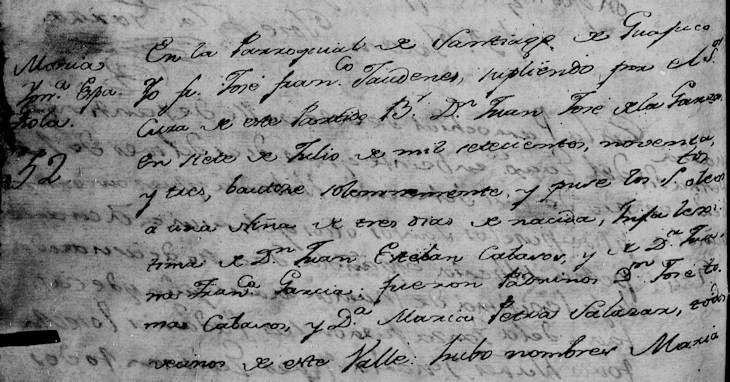 Maria
Jph.ª Espa
ñola.
52
En la Parroquial de Santiago de Guajuco
Yo fr. José Fran.co Jaudenes, supliendo por el S.or
Cura de este Partido B.r D.n Juan José de la Garza
en siete de Julio de mil setecientos, noventa,
y tres, bautise solemnemente, y puse los S.tos oleos
a una Niña de tres dias de nacida, hija legi
tima de D.n Juan Esteban Cabasos, y de D.ª
ma Fran.ca Garcia: fueron Padrinos D.n José to
mas Cabasos, y D.ª Maria Petra Salazar, todos
vecinos de este Valle: hubo nombres Maria